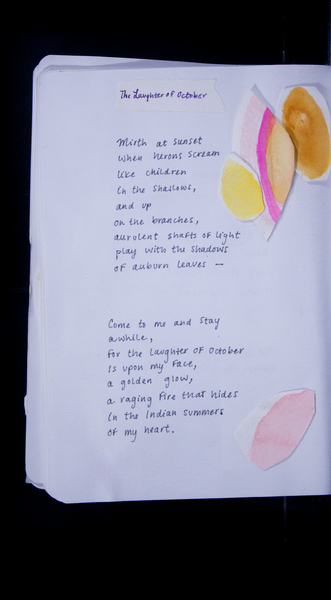 The Laughter of October
Mirth at sunset
when herons scream
like children
in the shallows,
and up
on the branches,
aurulent shafts of light
play with the shadows
of auburn leaves —
Come to me and stay
awhile,
For the laughter of October
is upon my face,
a golden glow,
a raging fire that hides
in the Indian summers
of my heart.